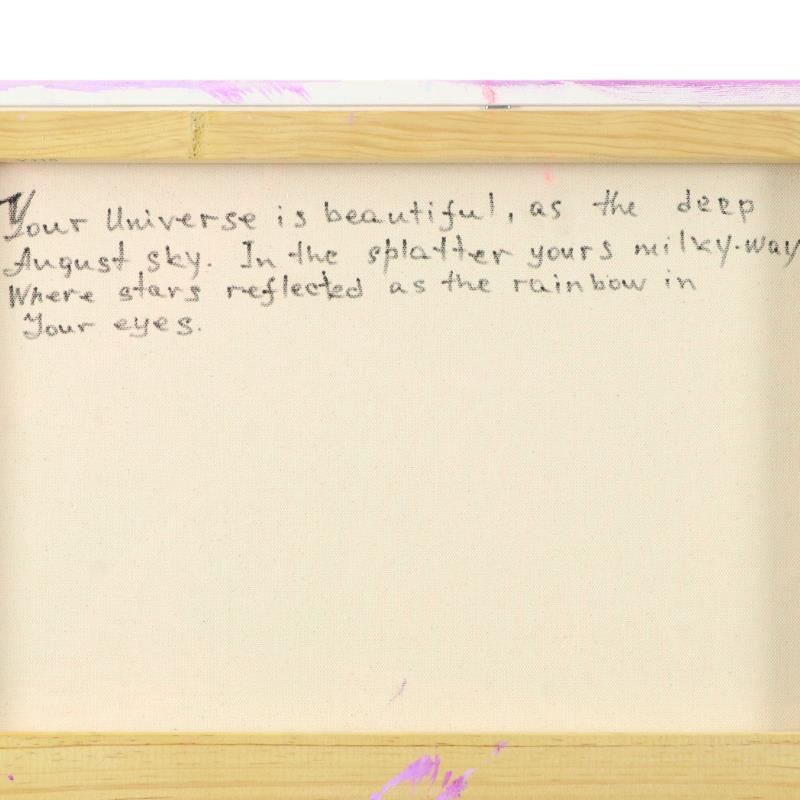 Your Universe is beautiful, as the deep
August sky. In the splatter yours milky-way
Where stars reflected as the rainbow in
Your eyes.